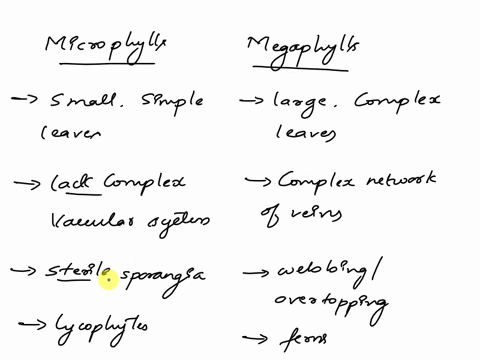 Microphylls
→ Small. Simple
leaves
→ lack Complex
Vascular system
→ sterile sporangia
→ lycophytes
Megaphylls
→ large. Complex
leaves
→ Complex network
of veins
→ webbing/
overtopping
→ ferns